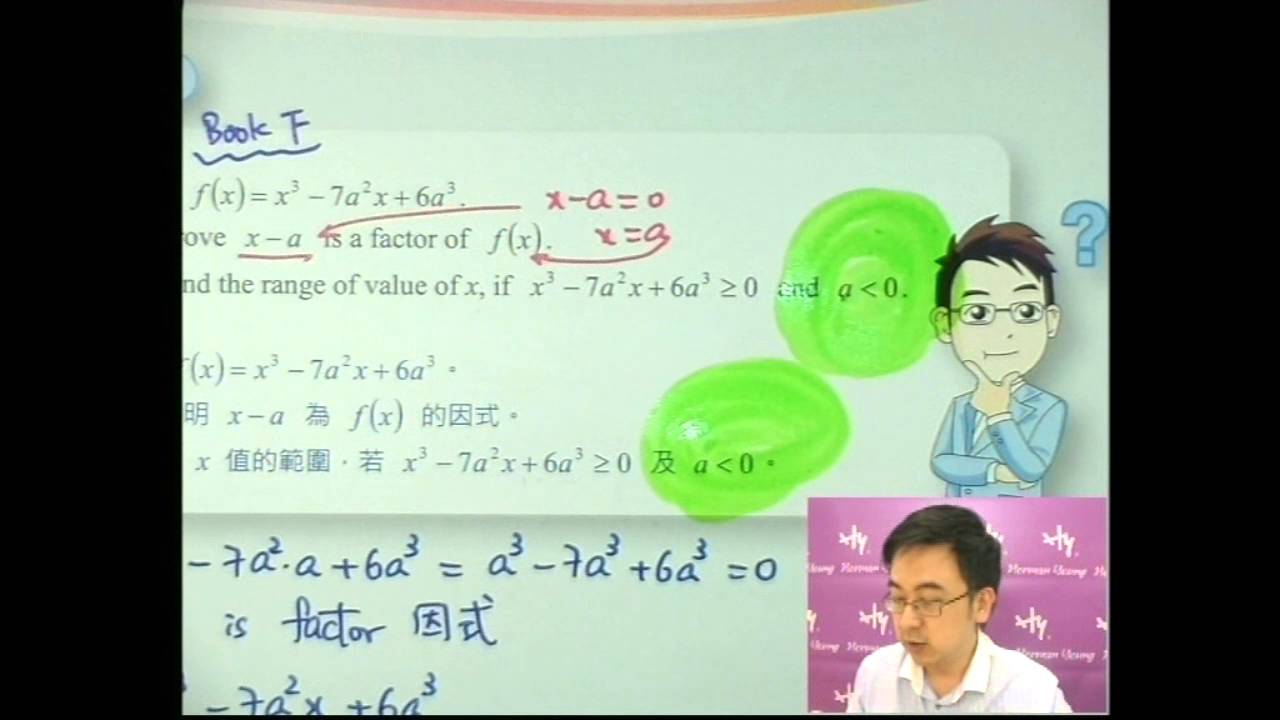 Book F
f(x) = x³ − 7a²x + 6a³.
x−a=0
ove x − a is a factor of f(x).
x=a
nd the range of value of x, if x³ − 7a²x + 6a³ ≥ 0 and a < 0.
?
f(x) = x³ − 7a²x + 6a³。
明 x − a 為 f(x) 的因式。
x 值的範圍,若 x³ − 7a²x + 6a³ ≥ 0 及 a < 0。
− 7a²·a + 6a³ = a³ − 7a³ + 6a³ = 0
is factor 因式
− 7a²x + 6a³
Herman Yeung